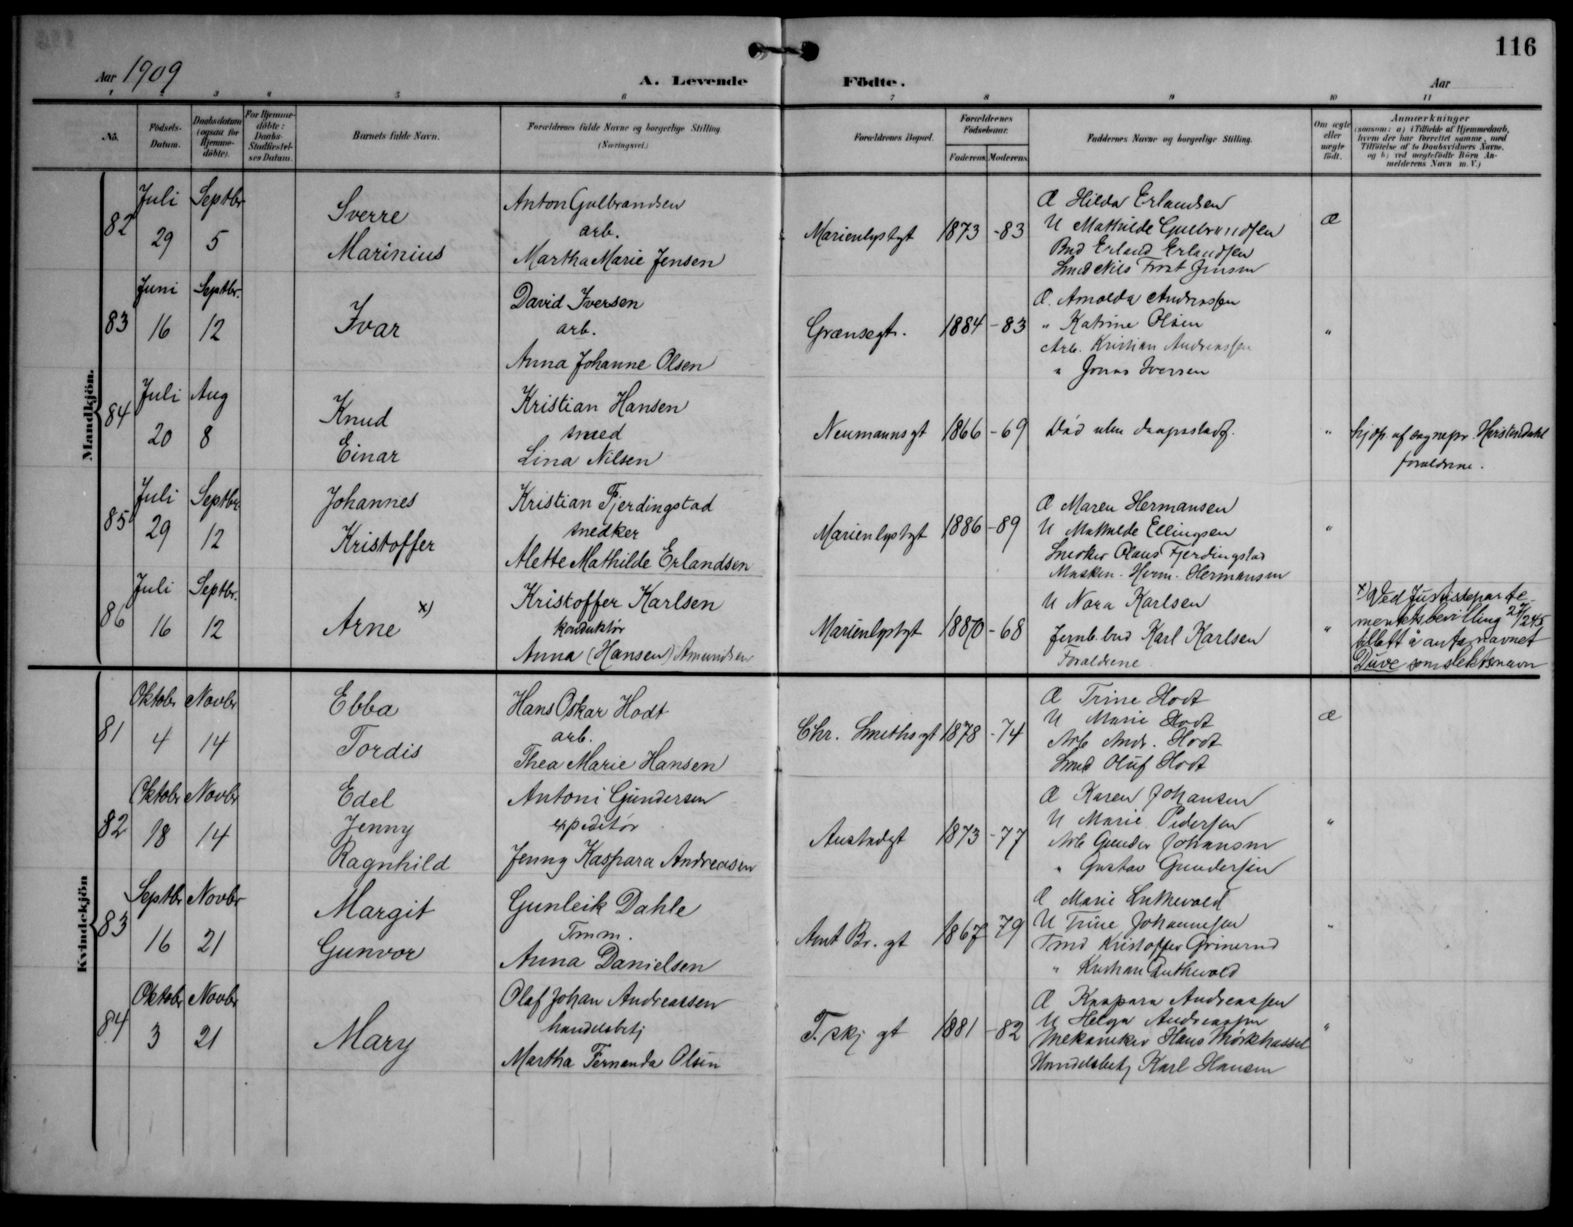 116
Aar 1909
A. Levende Födte.
Aar
1 2 3 4 5 6 7 8 9 10 11
No.
Fødsels-Datum.
Daabsdatum (ogsaa for Hjemmedøbte).
For Hjemmedøbte: Daabs-Stadfæstelses Datum.
Barnets fulde Navn.
Forældrenes fulde Navne og borgerlige Stilling (Næringsvei.)
Forældrenes Bopæl.
Forældrenes Fødselsaar.
Faderens Moderens
Faddernes Navne og borgerlige Stilling.
Om ægte eller uægte født.
Anmærkninger
(saasom: a) i Tilfælde af Hjemmedaab, hvem der har forrettet samme, med Tilföielse af to Daabsvidners Navne, og b) ved uægtefödte Börn Anmelderens Navn m. V.)
Mandkjön.
82 Juli 29 Septbr 5
Sverre
Marinius
Anton Gulbrandsen
arb.
Martha Marie Jensen
Marienlystgt 1873 -83
Æ Hilda Erlandsen
U Mathilde Gulbrandsen
Bud Erland Erlandsen
Smed Nils Jensen
Æ
83 Juni 16 Septbr. 12
Ivar
David Iversen
arb.
Anna Johanne Olsen
Grænsegt. 1884 -83
Æ. Arnolda Andreassen
" Katrine Olsen
Arb. Kristian Andreassen
" Jonas Iversen
"
84 Juli 20 Aug 8
Knud
Einar
Kristian Hansen
smed
Lina Nilsen
Neumannsgt 1866 -69
Död uden daapsstadf.
"
hjdp. af sognepr.
forældrene.
85 Juli 29 Septbr 12
Johannes
Kristoffer
Kristian Fjerdingstad
snedker
Alette Mathilde Erlandsen
Marienlystgt 1886 -89
Æ Maren Hermansen
U Mathilde Ellingsen
Snedker Olaus Fjerdingstad
Maskin. Herm. Hermansen
"
86 Juli 16 Septbr. 12
Arne x)
Kristoffer Karlsen
konduktör
Anna (Hansen) Amundsen
Marienlystgt 1870 -68
U Nora Karlsen
Jernb. bud Karl Karlsen
Forældrene
"
x) Ved Justisdeparte-
mentets bevilling
tillatt å anta navnet
Duve som slektsnavn
Kvindekjön
81 Oktobr 4 Novbr 14
Ebba
Tordis
Hans Oskar Hodt
arb.
Thea Marie Hansen
Chr. Smithsgt 1878 -74
Æ Trine Hodt
U Marie Hodt
Arb Andr. Hodt
Smed Oluf Hodt
Æ
82 Oktobr 18 Novbr 14
Edel
Jenny
Ragnhild
Antoni Gundersen
expeditör
Jenny Kaspara Andreasen
Austadgt 1873 -77
Æ Karen Johansen
U Marie Pedersen
Arb Gunder Johansen
" Gustav Gundersen
"
83 Septbr 16 Novbr 21
Margit
Gunvor
Gunleik Dahle
Tmm.
Anna Danielsen
Amt Br. gt 1867 79
Æ Marie Luthevold
U Trine Johannesen
Kristoffer Grinerud
" Kristian Luthevold
"
84 Oktobr 3 Novbr 21
Mary
Olaf Johan Andreassen
handelsbetj
Martha Fernanda Olsen
T. skj gt 1881 -82
Æ Kaspara Andreassen
U Helga Andreassen
Mekaniker Hans Mørkhassel
Handelsbetj Karl Hansen
"